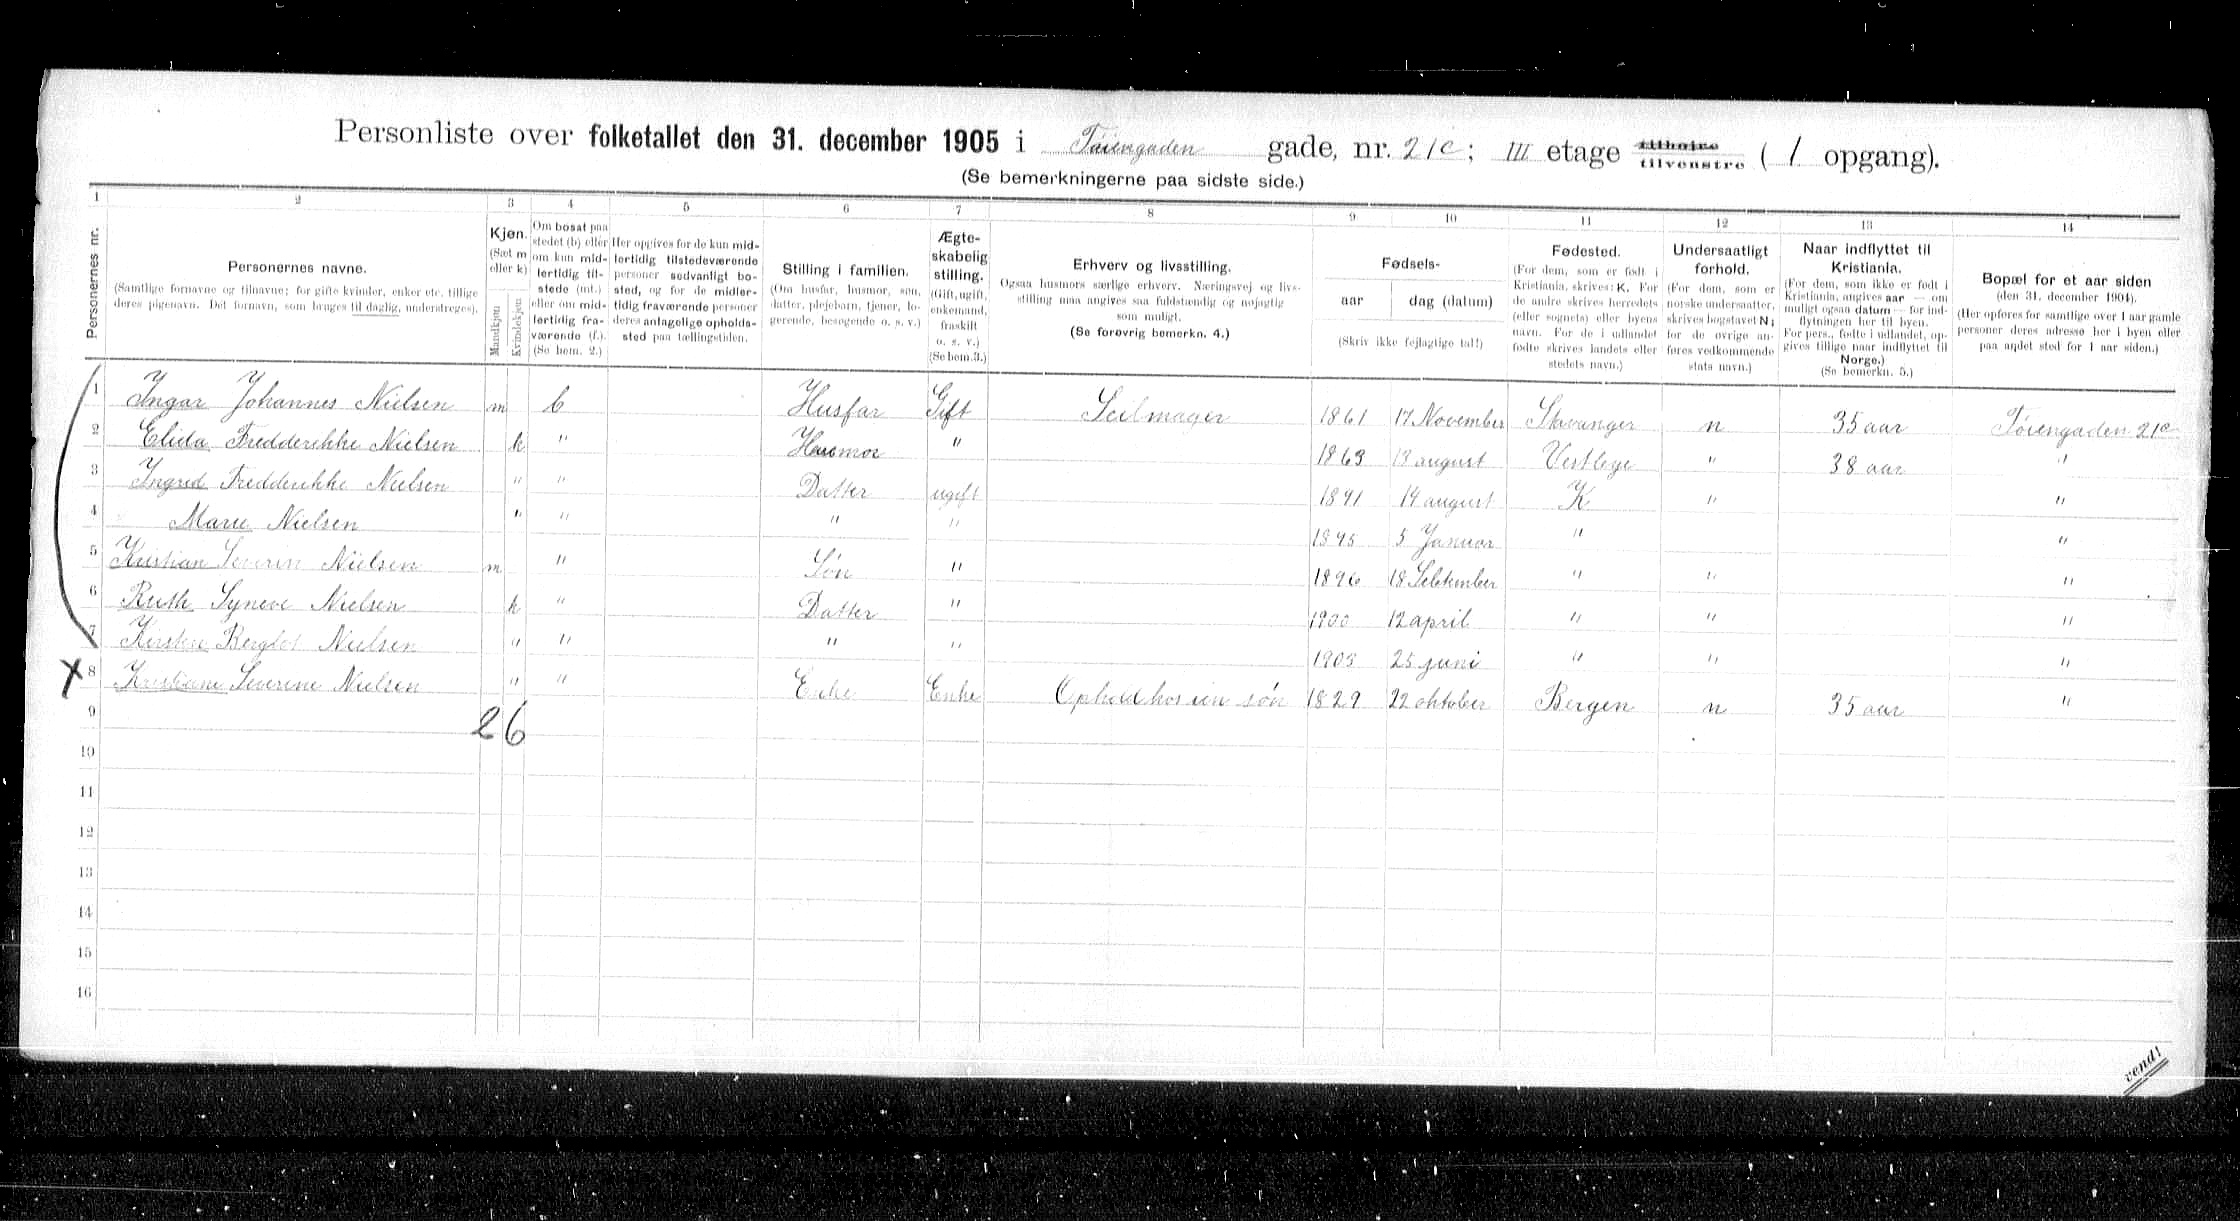 Personliste over folketallet den 31. december 1905 i Tøiengaden gade, nr. 21c; III etage tilhøire tilvenstre ( 1 opgang).
(Se bemerkningerne paa sidste side.)
1 2 3 4 5 6 7 8 9 10 11 12 13 14
Personernes nr.
Personernes navne.
(Samtlige fornavne og tilnavne; for gifte kvinder, enker etc. tillige
deres pigenavn. Det fornavn, som bruges til daglig, understreges).
Kjøn.
(Sæt m
eller k)
Mandkjøn
Kvindekjøn
Om bosat paa
stedet (b) eller
om kun mid-
lertidig til-
stede (mt.)
eller om mid-
lertidig fra-
værende (f.).
(Se bem. 2.)
Her opgives for de kun mid-
lertidig tilstedeværende
personer sedvanligt bo-
sted, og for de midler-
tidig fraværende personer
deres antagelige opholds-
sted paa tællingstiden.
Stilling i familien.
(Om husfar, husmor, søn,
datter, plejebarn, tjener, lo-
gerende, besøgende o. s. v.)
Ægte-
skabelig
stilling.
(Gift, ugift,
enkemand,
fraskilt
o. s. v.)
(Se bem. 3.)
Erhverv og livsstilling.
Ogsaa husmors særlige erhverv. Næringsvej og livs-
stilling maa angives saa fuldstændig og nøjagtig
som muligt.
(Se forøvrig bemerkn. 4.)
Fødsels-
aar
dag (datum)
(Skriv ikke fejlagtige tal!)
Fødested.
(For dem, som er født i
Kristiania, skrives: K. For
de andre skrives herredets
(eller sognets) eller byens
navn. For de i udlandet
fødte skrives landets eller
stedets navn.)
Undersaatligt
forhold.
(For dem, som er
norske undersaatter,
skrives bogstavet N;
for de øvrige an-
føres vedkommende
stats navn.)
Naar indflyttet til
Kristiania.
(For dem, som ikke er født i
Kristiania, angives aar — om
muligt ogsaa datum — for ind-
flytningen her til byen.
For pers., fødte i udlandet, op-
gives tillige naar indflyttet til
Norge.)
(Se bemerkn. 5.)
Bopæl for et aar siden
(den 31. december 1904).
(Her opføres for samtlige over 1 aar gamle
personer deres adresse her i byen eller
paa andet sted for 1 aar siden.)
1 Ingar Johannes Nielsen m b Husfar Gift Seilmager 1861 17 November Stavanger n 35 aar Tøiengaden 21c
2 Elida Fredderikke Nielsen k " Husmor " 1863 13 august " 38 aar "
3 Ingred Fredderikke Nielsen " " Datter ugift 1891 14 august K " "
4 Marie Nielsen " " " " 1895 5 Januar " "
5 Kristian Severin Nielsen m " Søn " 1896 18 September " " "
6 Ruth Syneve Nielsen k " Datter " 1900 12 april " " "
7 Bergliot Nielsen " " " " 1903 25 juni " " "
X 8 Kristiane Severine Nielsen " " Enke Enke Ophold hos sin søn 1829 22 oktober Bergen n 35 aar "
9 2 6
10
11
12
13
14
15
16
vend!